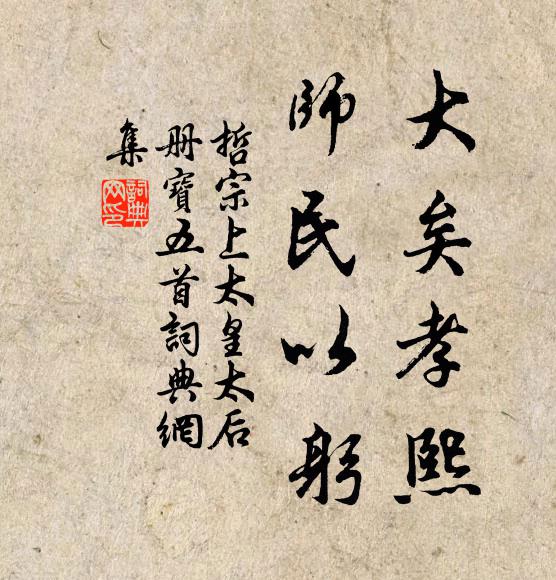 大矣孝熙
師民以躬
哲宗上太皇太后
册寶五首詞典網
集
詞典
网印